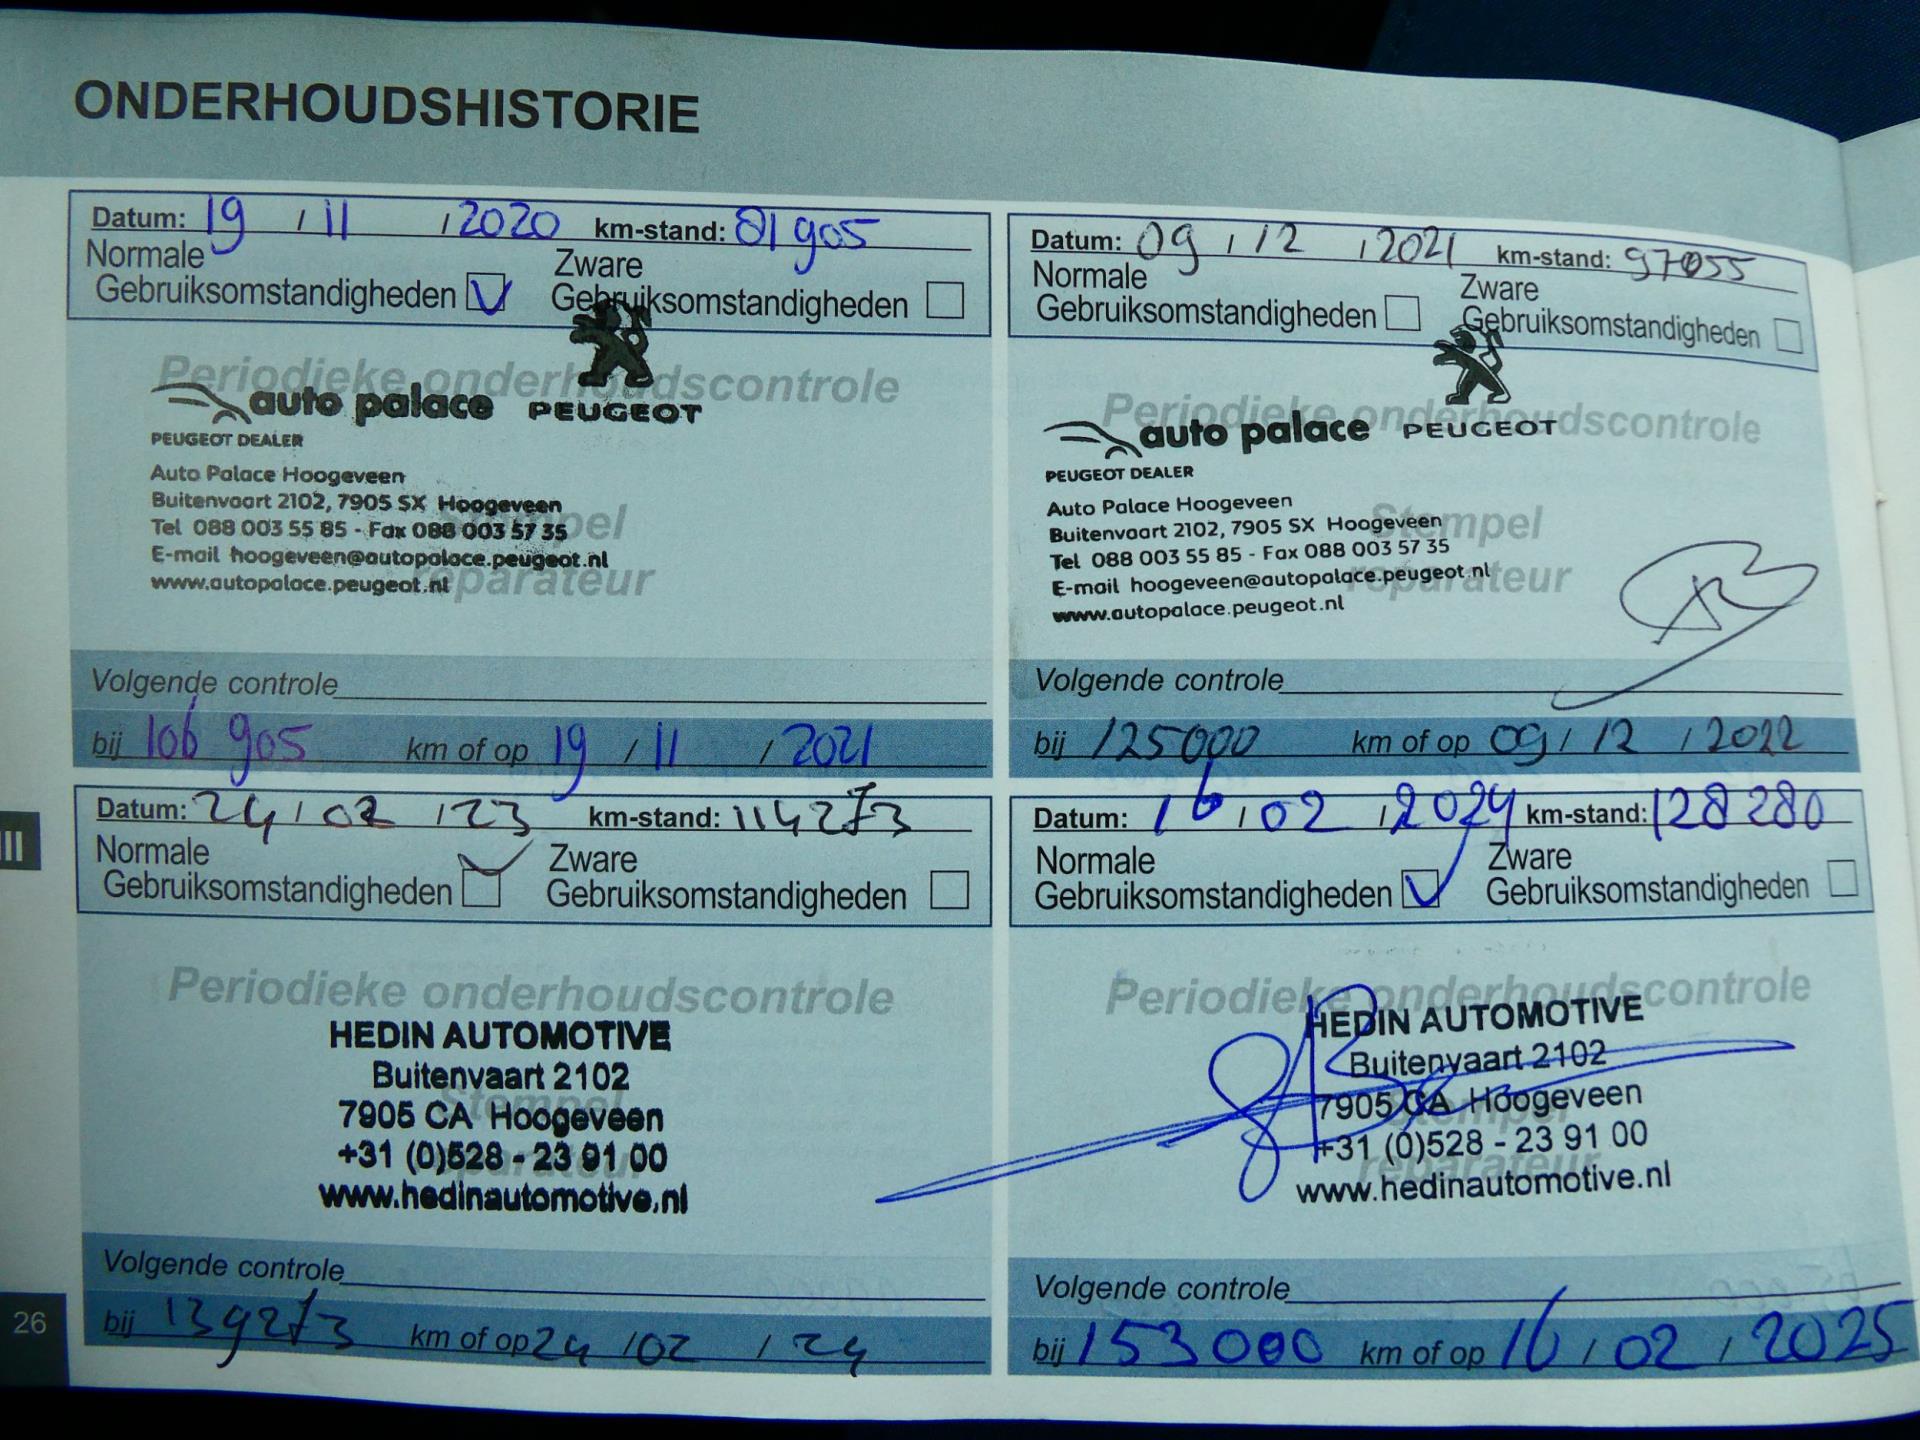 ONDERHOUDSHISTORIE
Datum: 19 / 11 / 2020 km-stand: 81905
Normale Gebruiksomstandigheden Zware Gebruiksomstandigheden
Periodieke onderhoudscontrole
auto palace PEUGEOT
PEUGEOT DEALER
Auto Palace Hoogeveen
Buitenvaart 2102, 7905 SX Hoogeveen
Tel 088 003 55 85 - Fax 088 003 57 35
E-mail hoogeveen@autopalace.peugeot.nl
www.autopalace.peugeot.nl
Stempel
reparateur
Volgende controle
bij 106905 km of op 19 / 11 / 2021
Datum: 09 / 12 / 2021 km-stand: 97055
Normale Gebruiksomstandigheden Zware Gebruiksomstandigheden
Periodieke onderhoudscontrole
auto palace PEUGEOT
PEUGEOT DEALER
Auto Palace Hoogeveen
Buitenvaart 2102, 7905 SX Hoogeveen
Tel 088 003 55 85 - Fax 088 003 57 35
E-mail hoogeveen@autopalace.peugeot.nl
www.autopalace.peugeot.nl
Stempel
reparateur
Volgende controle
bij 125000 km of op 09 / 12 / 2022
Datum: 24 / 02 / 23 km-stand: 114273
Normale Gebruiksomstandigheden Zware Gebruiksomstandigheden
Periodieke onderhoudscontrole
HEDIN AUTOMOTIVE
Buitenvaart 2102
7905 CA Hoogeveen
+31 (0)528 - 23 91 00
www.hedinautomotive.nl
Stempel
reparateur
Volgende controle
bij 139273 km of op 24 / 02 / 24
Datum: 16 / 02 / 2024 km-stand: 128280
Normale Gebruiksomstandigheden Zware Gebruiksomstandigheden
Periodieke onderhoudscontrole
HEDIN AUTOMOTIVE
Buitenvaart 2102
7905 CA Hoogeveen
+31 (0)528 - 23 91 00
www.hedinautomotive.nl
Stempel
reparateur
Volgende controle
bij 153000 km of op 16 / 02 / 2025
III
26